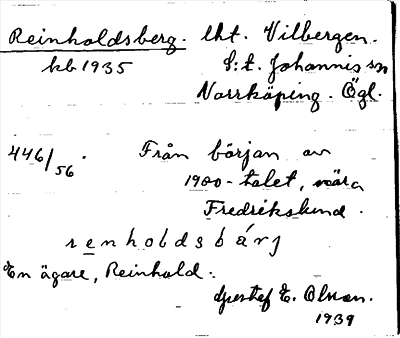 Reinholdsberg. lht. Vilbergen.
kb 1935 S:t. Johannis sn
Norrköping. Ögl.
446/56. Från början av
1900-talet, nära
Fredrikslund.
renholdsbárj
En ägare, Reinhold.
Gustaf E. Olsson.
1939